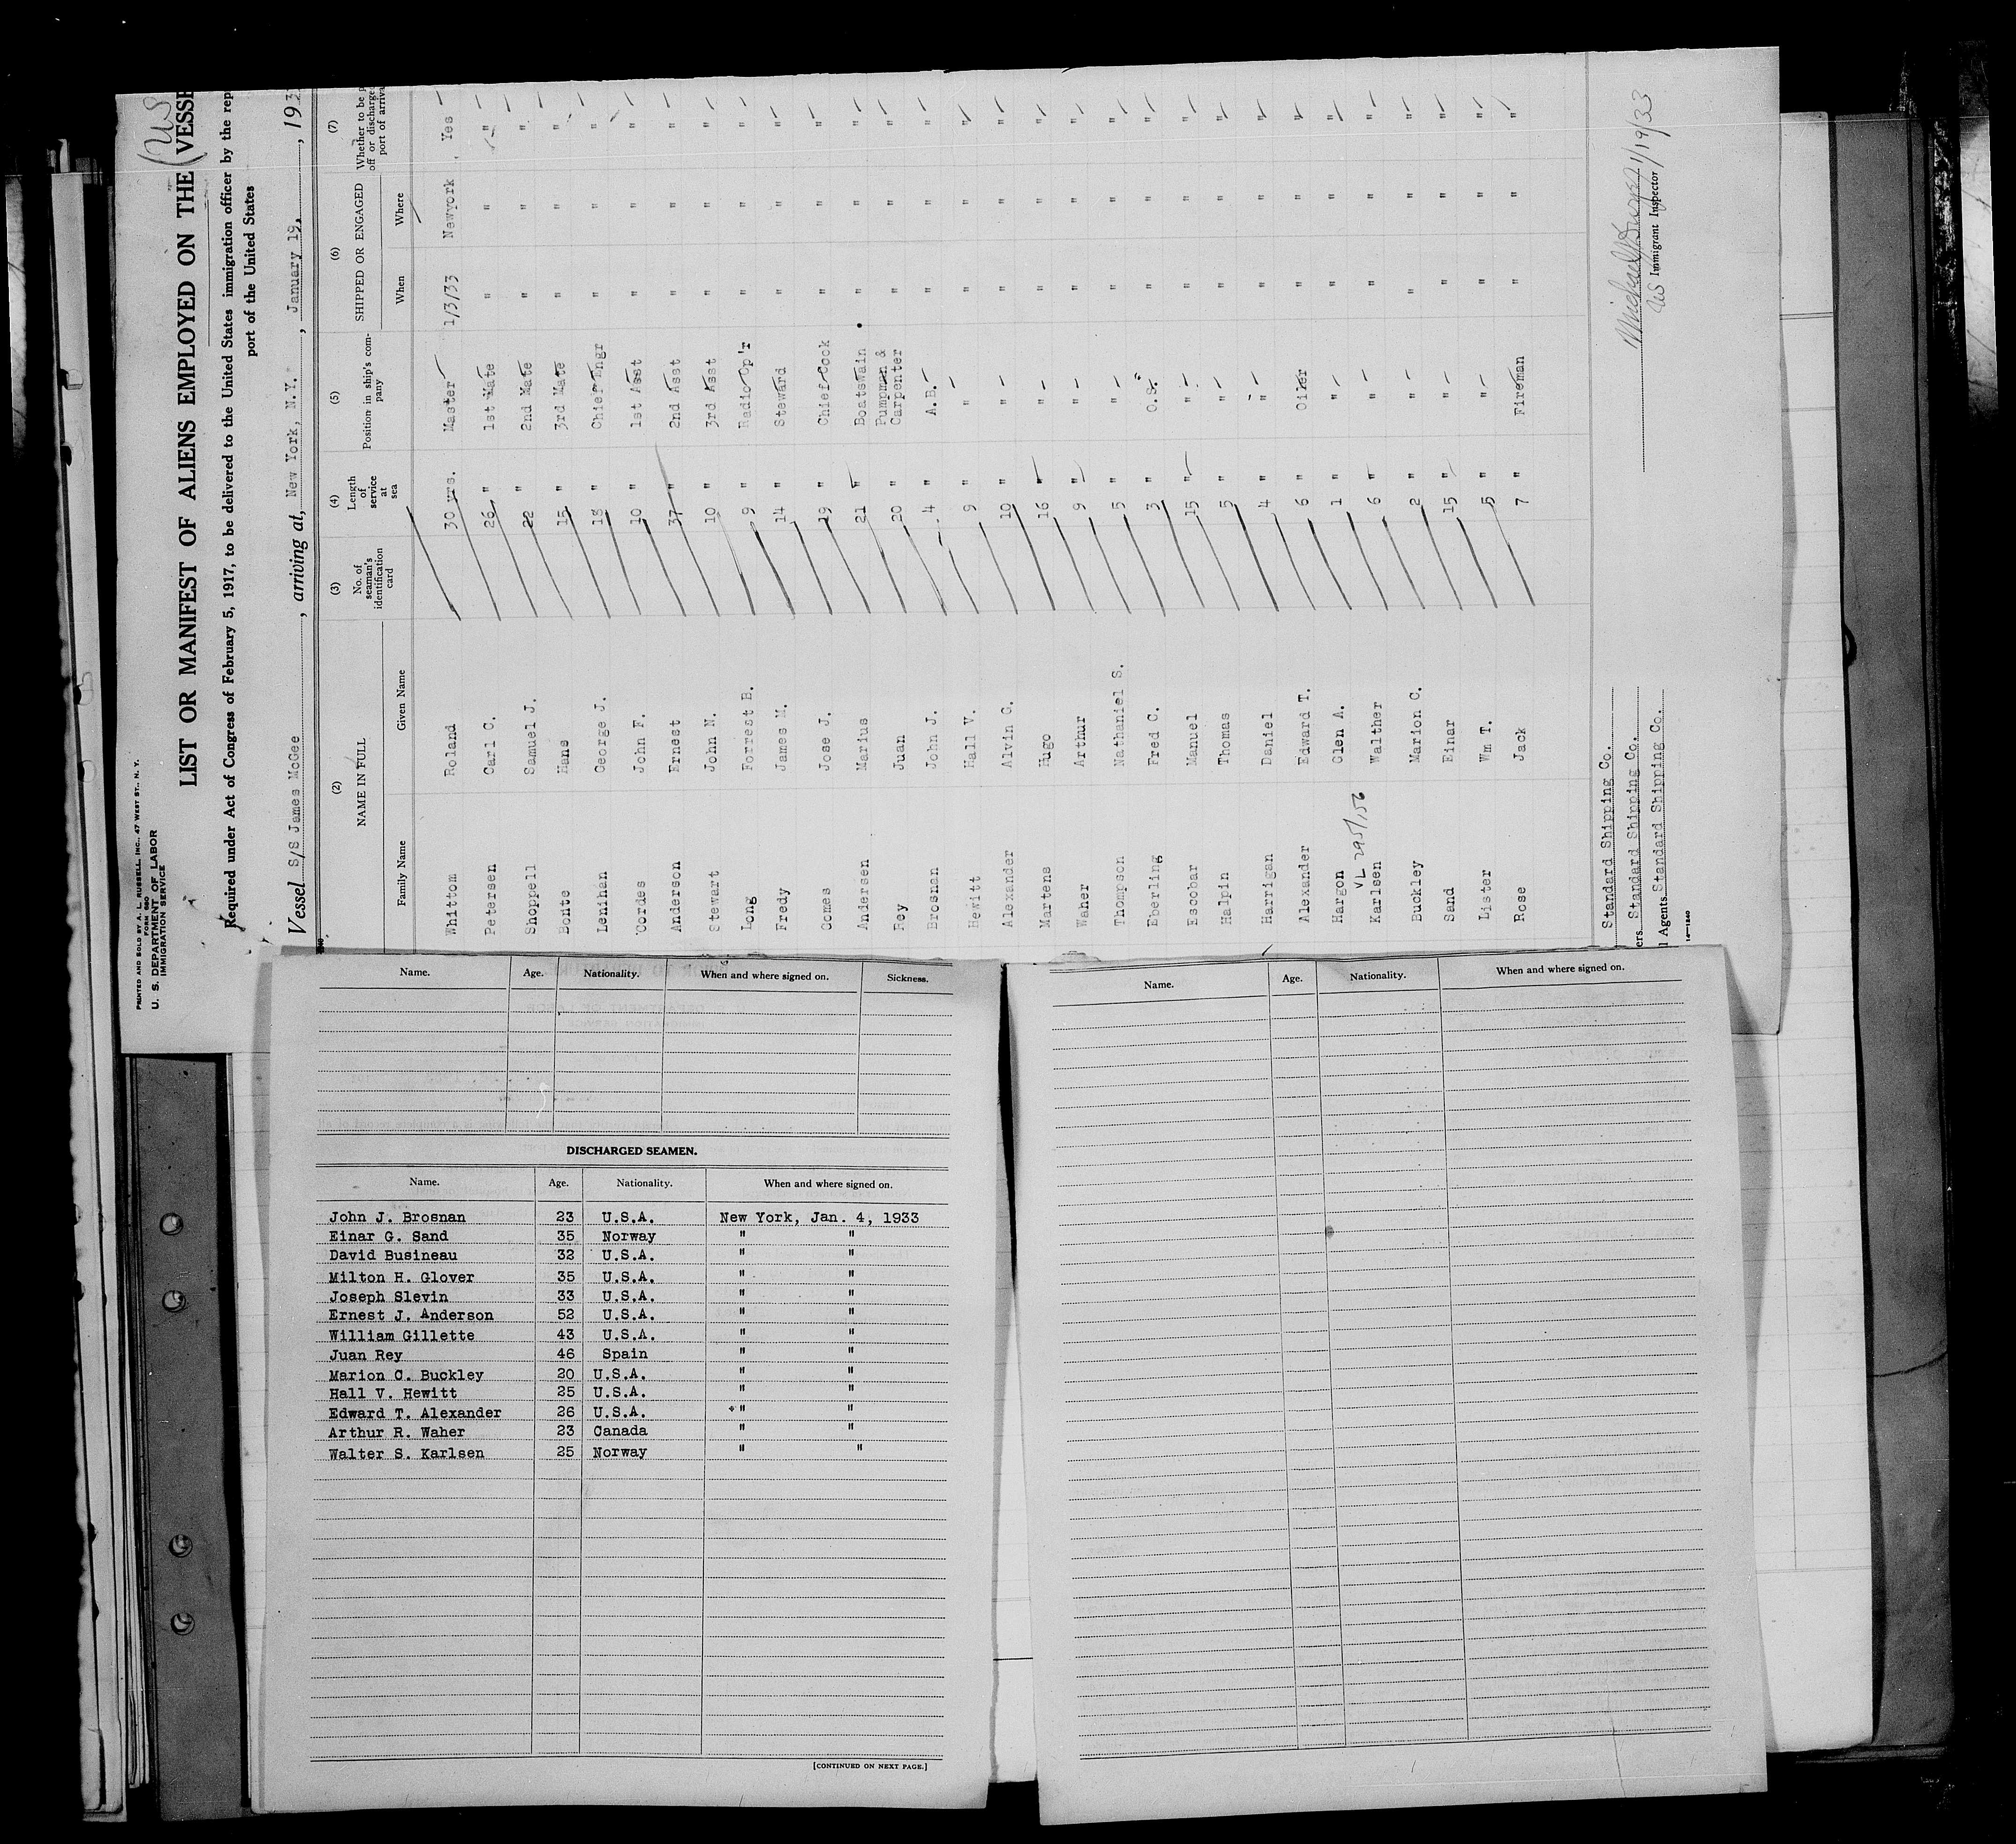 PRINTED AND SOLD BY A. L. RUSSELL, INC., 47 WEST ST., N. Y.
FORM 680
U. S. DEPARTMENT OF LABOR
IMMIGRATION SERVICE
LIST OR MANIFEST OF ALIENS EMPLOYED ON THE VESSE
Required under Act of Congress of February 5, 1917, to be delivered to the United States immigration officer by the rep
port of the United States
Vessel S/S James McGee, arriving at, New York, N.Y., January 19, 193
(2) (3) (4) (5) (6) (7)
NAME IN FULL No. of seaman's identification card Length of service at sea Position in ship's company SHIPPED OR ENGAGED Whether to be p off or discharge port of arriva
Family Name Given Name When Where
Whittom Roland 30 yrs. Master 1/3/33 Newyork Yes
Petersen Carl C. 26 " 1st Mate " " "
Shoppell Samuel J. 22 " 2nd Mate " " "
Bonte Hans 15 " 3rd Mate " " "
Lenihan George J. 18 " Chief Engr " " "
Cordes John F. 10 " 1st Asst " " "
Anderson Ernest 37 " 2nd Asst " " "
Stewart John N. 10 " 3rd Asst " " "
Long Forrest B. 9 " Radio Op'r " " "
Fredy James M. 14 " Steward " " "
Gomes Jose J. 19 " Chief Cook " " "
Andersen Marius 21 " Boatswain " " "
Rey Juan 20 " Pumpman & Carpenter " " "
Brosnan John J. 4 " A.B. " " "
Hewitt Hall V. 9 " " " " "
Alexander Alvin G. 10 " " " " "
Martens Hugo 16 " " " " "
Waher Arthur 9 " " " " "
Thompson Nathaniel S. 5 " " " " "
Eberling Fred C. 3 " O.S. " " "
Escobar Manuel 15 " " " " "
Halpin Thomas 5 " " " " "
Harrigan Daniel 4 " " " " "
Alexander Edward T. 6 " Oiler " " "
Hargon Glen A. 1 " " " " "
VL 295/156
Karlsen Walther 6 " " " " "
Buckley Marion C. 2 " " " " "
Sand Einar 15 " " " " "
Lister Wm T. 5 " " " " "
Rose Jack 7 " Fireman " " "
Standard Shipping Co.
ers Standard Shipping Co.
l Agents Standard Shipping Co.
14—1240
1/19/33
US Immigrant Inspector
Name. Age. Nationality. When and where signed on. Sickness.
DISCHARGED SEAMEN.
Name. Age. Nationality. When and where signed on.
John J. Brosnan 23 U.S.A. New York, Jan. 4, 1933
Einar G. Sand 35 Norway " "
David Busineau 32 U.S.A. " "
Milton H. Glover 35 U.S.A. " "
Joseph Slevin 33 U.S.A. " "
Ernest J. Anderson 52 U.S.A. " "
William Gillette 43 U.S.A. " "
Juan Rey 46 Spain " "
Marion C. Buckley 20 U.S.A. " "
Hall V. Hewitt 25 U.S.A. " "
Edward T. Alexander 26 U.S.A. " "
Arthur R. Waher 23 Canada " "
Walter S. Karlsen 25 Norway " "
[CONTINUED ON NEXT PAGE.]
Name. Age. Nationality. When and where signed on.